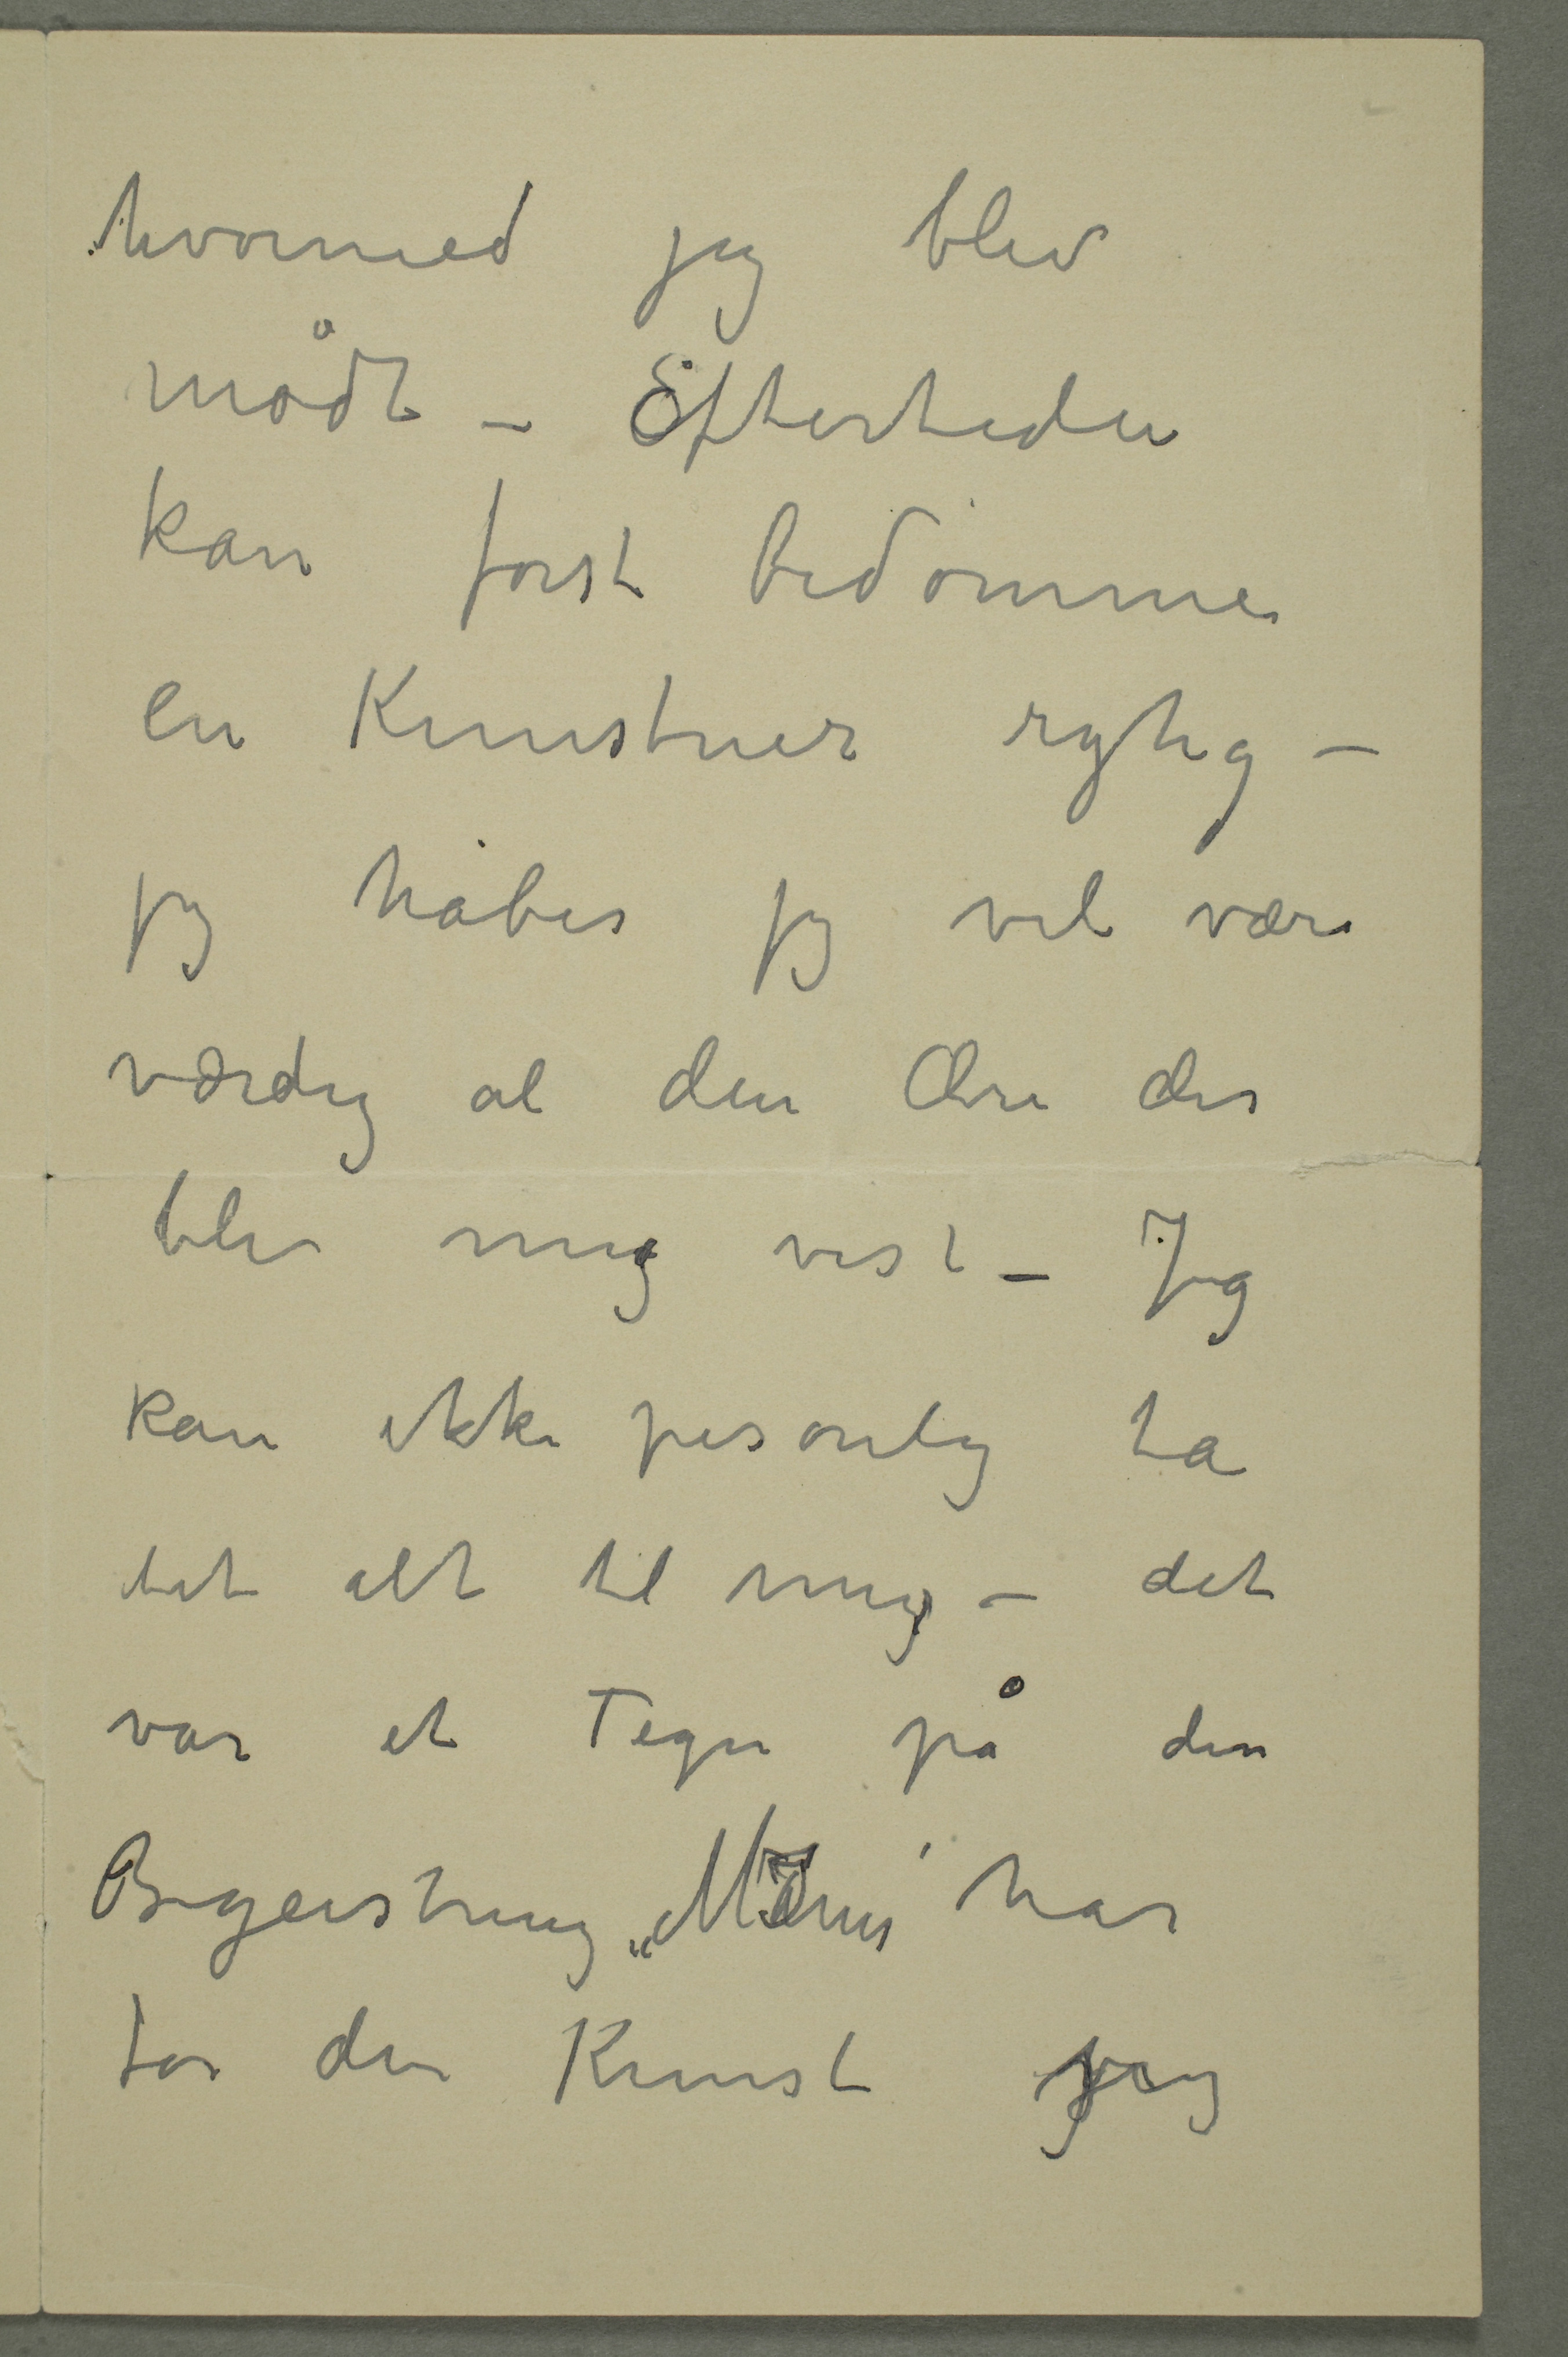 hvormed jeg blev
mødt – Eftertiden
kan først bedømme
en Kunstner rygtig –
jeg håber jeg vil være
værdig al den Ære der
blev mig vist – Jeg
kan ikke pesonlig ta
det alt til mig – det
var et Tegn på den
Begeistring „Mänes“ har
for den Kunst jeg